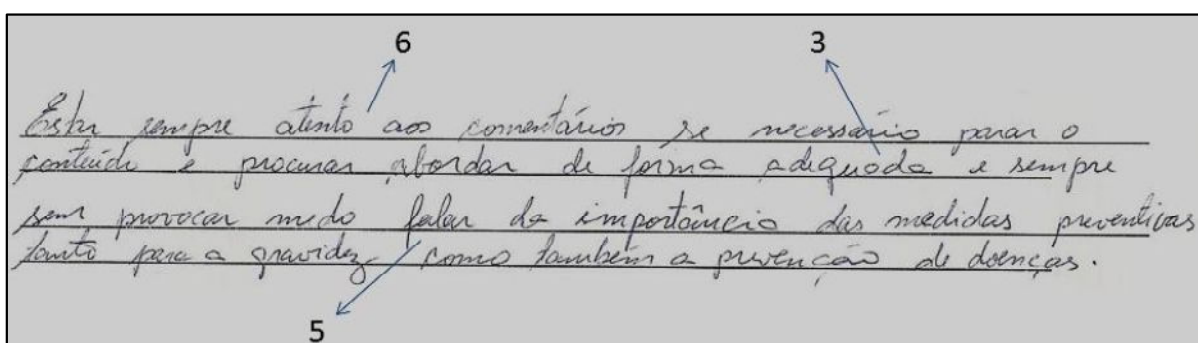 6 3
Estar sempre atento aos comentários se necessário parar o
conteúdo e procurar abordar de forma adequada e sempre
sem provocar medo falar da importância das medidas preventivas
tanto para a gravidez como também a prevenção de doenças.
5